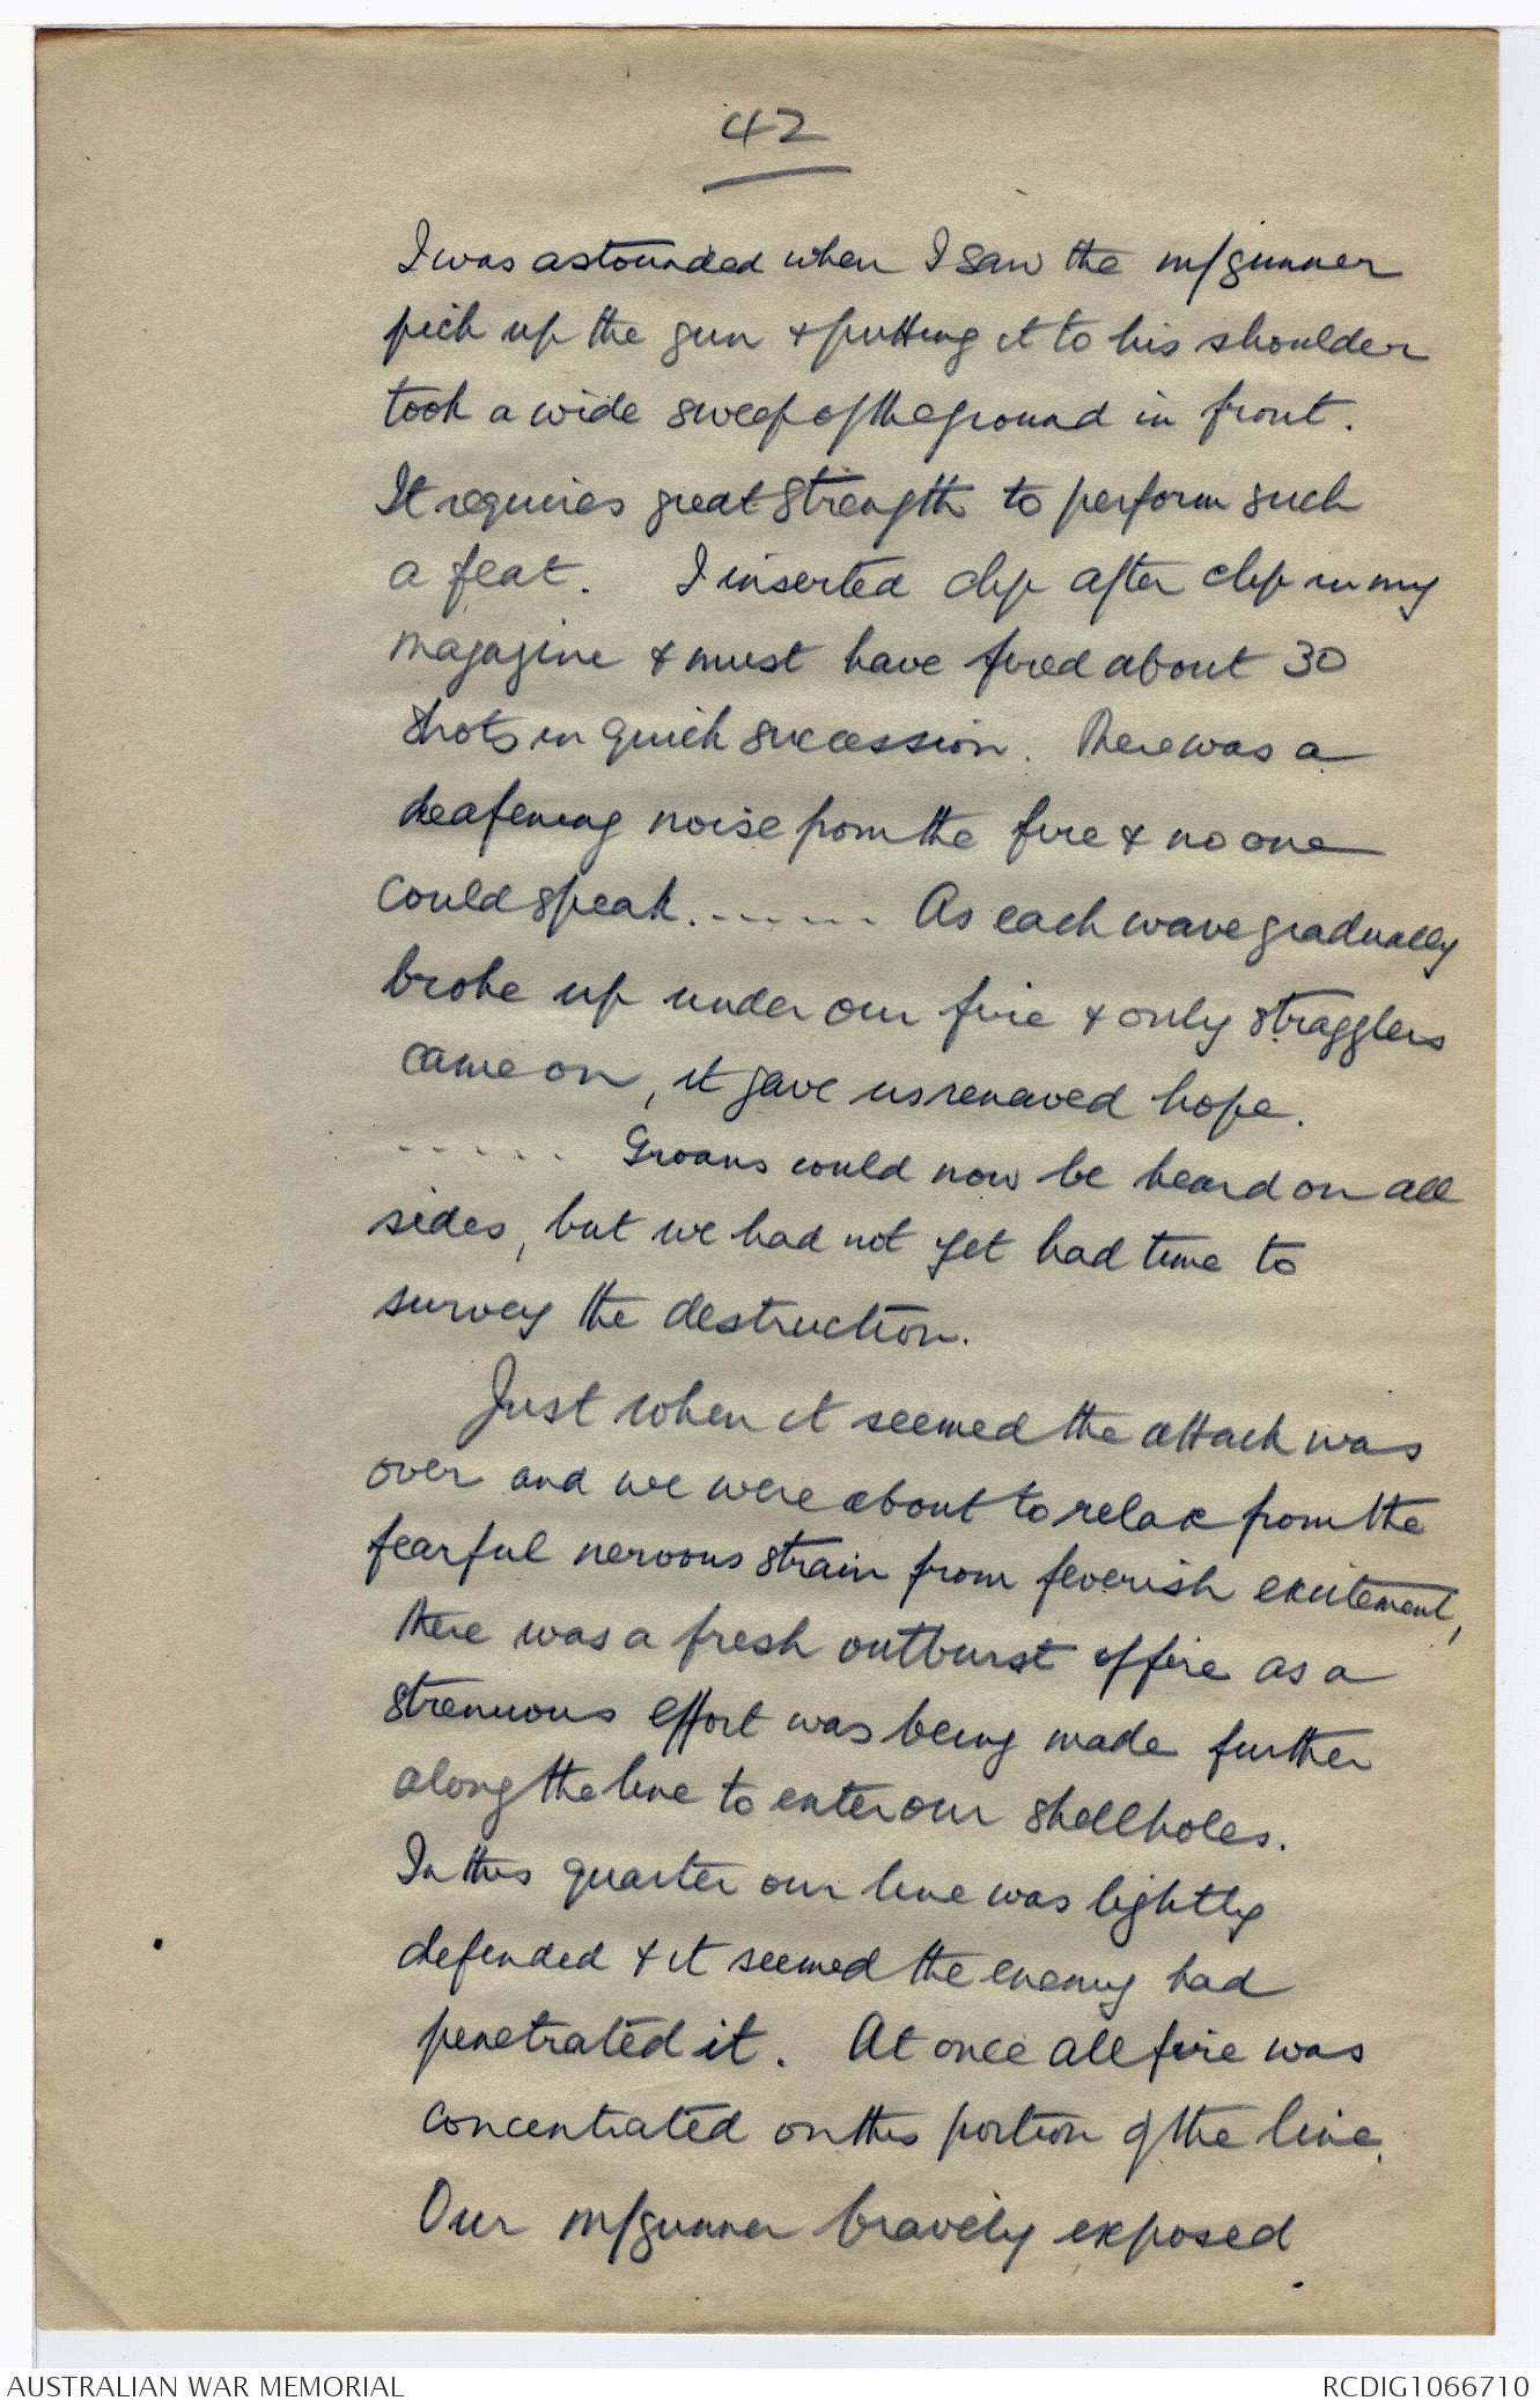 42
I was astounded when I saw the m/gunner
pick up the gun & putting it to his shoulder
took a wide sweep of the ground in front.
It requires great strength to perform such
a feat. I inserted clip after clip in my
magazine & must have fired about 30
shots in quick succession. There was a
deafening noise from the fire & no one
could speak. ...... As each wave gradually
broke up under our fire & only stragglers
came on, it gave us renewed hope.
..... Groans could now be heard on all
sides, but we had not yet had time to
survey the destruction.
Just when it seemed the attack was
over and we were about to relax from the
fearful nervous strain from feverish excitement,
there was a fresh outburst of fire as a
strenuous effort was being made further
along the line to enter our shellholes.
In this quarter our line was lightly
defended & it seemed the enemy had
penetrated it. At once all fire was
concentrated on this portion of the line.
Our m/gunner bravely exposed
AUSTRALIAN WAR MEMORIAL
RCDIG1066710